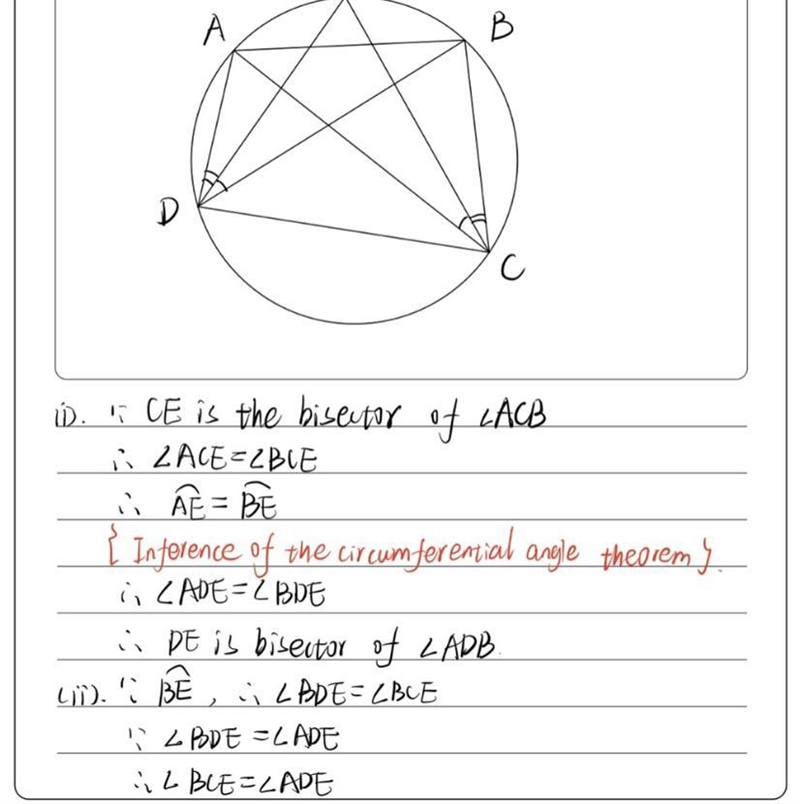 A
B
D
C
(i). ∵ CE is the bisector of ∠ACB
∴ ∠ACE=∠BCE
∴ A͡E = B͡E
{Inference of the circumferential angle theorem}.
∴ ∠ADE=∠BDE
∴ DE is bisector of ∠ADB.
(ii). ∵ B͡E, ∴ ∠BDE=∠BCE
∵ ∠BDE=∠ADE
∴ ∠BCE=∠ADE